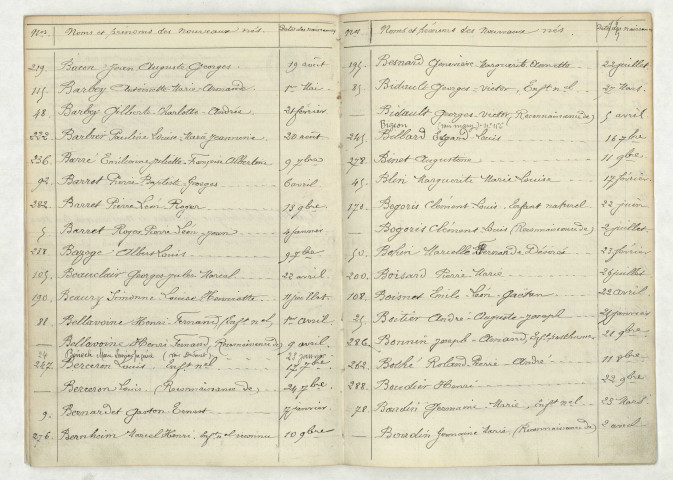 Nos. Noms et prénoms des nouveaux nés. Dates des naissances
219. Bacon Jean Auguste Georges. 19 août
115. Barbey Antoinette Marie Armande 1er Mai
48. Barbey Gilberte Charlotte Andrée 21 février
222. Barbier Pauline Louise Maria Jeannine 20 août
236. Barre Emilienne Juliette Françoise Albertine 9 7bre
92. Barret Pierre Baptiste Georges 6 avril
282. Barret Pierre Léon Roger 13 9bre
5. Barret Roger Pierre Léon Jean 4 janvier
238. Bazoge Albert Louis 9 7bre
105. Beauclair Georges Jules Marcel 22 avril
190. Beaury Simonne Louise Henriette 11 juillet
88. Bellavoine Henri Fernand, Enft nel 1er avril
Bellavoine Henri Fernand, Reconnaissance de 9 avril
24 23 janvier
247. Berceron Louis Enft nel 17 7bre
Berceron Louis (Reconnaissance de) 24 7bre
9. Bernardet Gaston Ernest 7 janvier
276. Bernheim Marcel Henri, Enft nel reconnu 10 9bre
Nos. Noms et prénoms des nouveaux nés. Dates des naissances
195. Besnard Geneviève Marguerite 22 juillet
85. Bidault Georges Victor, Enft nel 27 Mars.
Bidault Georges Victor, Reconnaissance de) 5 avril
Bizeon
245. Billard Edgard Louis 16 7bre
278. Binet Augustine 11 9bre
45. Blin Marguerite Marie Louise 17 février.
170. Bogoris Clément Louis, Enfant naturel 22 juin
Bogoris Clément Louis (Reconnaissance de) 2 juillet
50. Bohin Marcelle Fernande Désirée 23 février
200. Boisard Pierre Marie 26 juillet
108. Boisnet Emile Léon Gaston 22 avril
25. Boitier André Auguste Joseph 21 janvier
286. Bonnin Joseph Armand, Enft posthume 21 9bre
262. Bothé Roland Pierre André 11 8bre
288. Boudier Henri 22 9bre
78. Bourdin Germaine Marie, Enft nel 23 Mars.
Bourdin Germaine Marie (Reconnaissance de) 2 avril